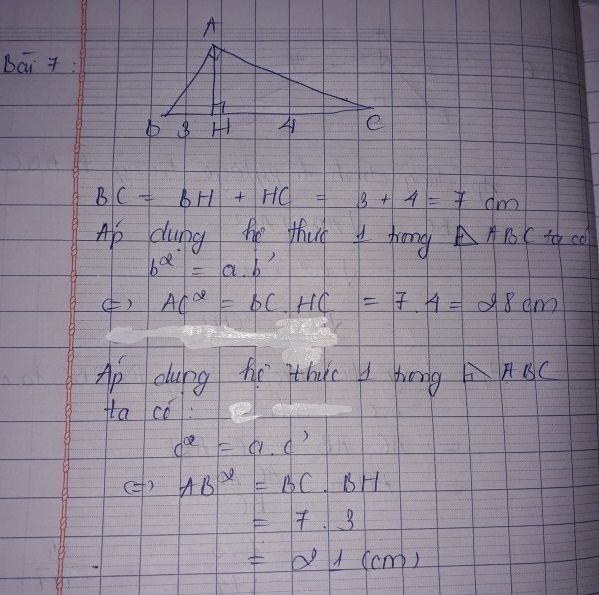 Bài 7:
A
B 3 H 4 C
BC = BH + HC = 3 + 4 = 7 cm
Áp dụng hệ thức 1 trong ⊿ ABC ta có
b² = a.b'
⇔ AC² = BC.HC = 7.4 = 28 cm
Áp dụng hệ thức 1 trong ⊿ ABC
ta có:
c² = a.c'
⇔ AB² = BC.BH
= 7.3
= 21 (cm)